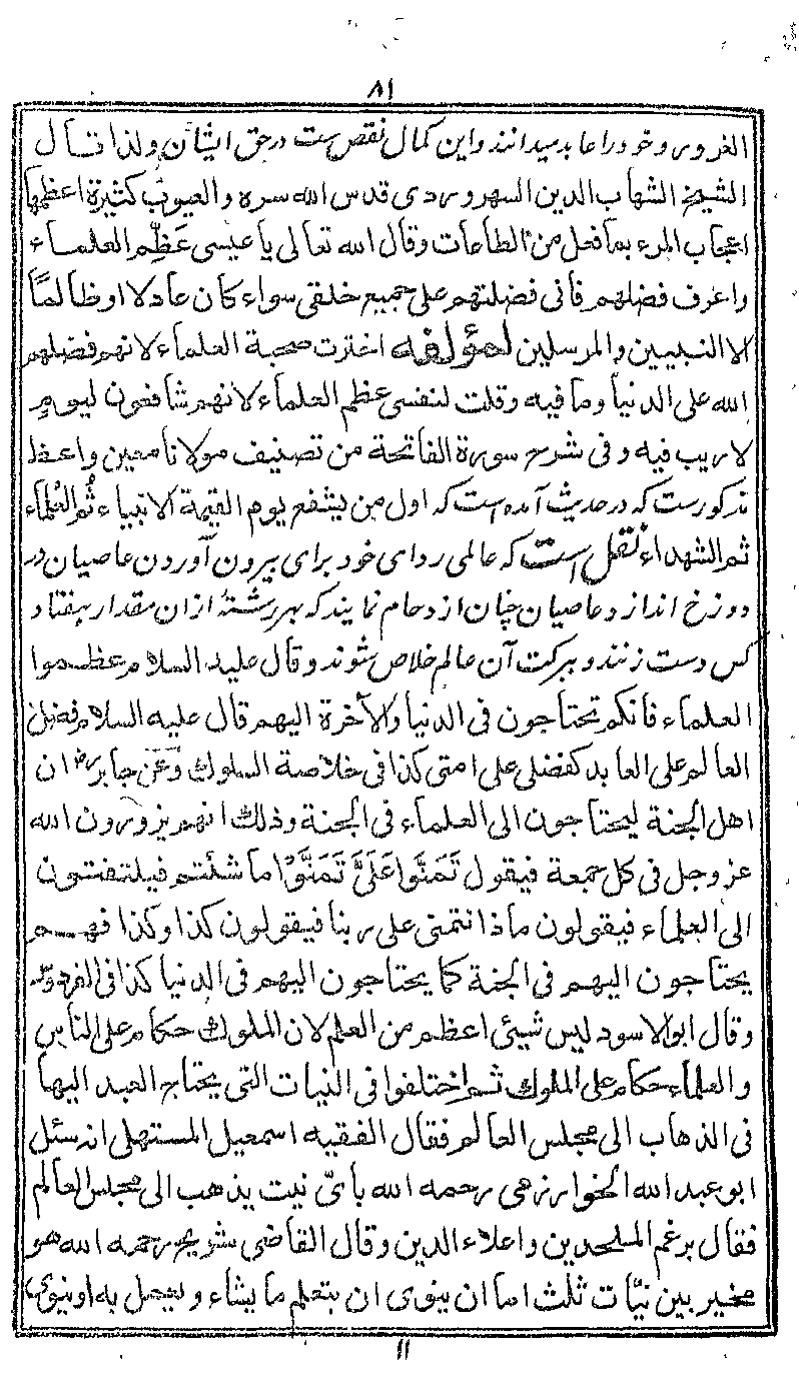 ۸۱
الغرور و خود را عابد میدانند و این کمال نقص ست در حق ایشان و لذا قال
الشیخ الشهاب الدین السهروردی قدس الله سره و العیوب کثیرة اعظمها
اعجاب المرء بما فعل من الطاعات وقال الله تعالی یا عیسی عَظِّم العلماء
واعرف فضلهم فانی فضلتهم علی جمیع خلقی سواء کان عادلا او ظالمًا
الا النبیین والمرسلین لمؤلفه اخترت صحبة العلماء لانهم فضلهم
الله علی الدنیا وما فیه وقلت لنفسی عظم العلماء لانهم شافعون لیومٍ
لا ریب فیه و فی شرح سورة الفاتحة من تصنیف مولانا معین واعظ
مذکورست که در حدیث آمده است که اول من یشفع یوم القیمة الانبیاء ثُم العُلماء
ثم الشهداء نقل است که عالمی ردای خود برای بیرون آوردن عاصیان در
دوزخ اندازد عاصیان چنان ازدحام نمایند که بهر رشتهٔ ازان مقدار هفتاد
کس دست زنند و ببرکت آن عالم خلاص شوند وقال علیه السلام عظموا
العلماء فانکم تحتاجون فی الدنیا والآخرة الیهم قال علیه السلام فضل
العالم علی العابد کفضلی علی امتی کذا فی خلاصة السلوک وَعَن جابر رض ان
اهل الجنة لیحتاجون الی العلماء فی الجنة وذلک انهم یزورون الله
عز وجل فی کل جمعة فیقول تَمَنَّوا عَلَیَّ تَمَنَّوْا ما شئتم فیلتفتون
الی العلماء فیقولون ماذا نتمنی علی ربنا فیقولون کذا وکذا فهم
یحتاجون الیهم فی الجنة کما یحتاجون الیهم فی الدنیا کذا فی الفردوس
وقال ابوالاسود لیس شیئی اعظم من العلم لان الملوک حکام علی الناس
والعلماء حکام علی الملوک ثم اختلفوا فی النیات التی یحتاج العبد الیها
فی الذهاب الی مجلس العالم فقال الفقیه اسمعیل المستهلی انه سئل
ابو عبد الله الخوارزمی رحمه الله بأیّ نیت یذهب الی مجلس العالم
فقال برغم الملحدین واعلاء الدین وقال القاضی شریح رحمه الله هو
مخیر بین نیّات ثلث اما ان ینوی ان یتعلم ما یشاء و یعمل به او ینوی
۱۱